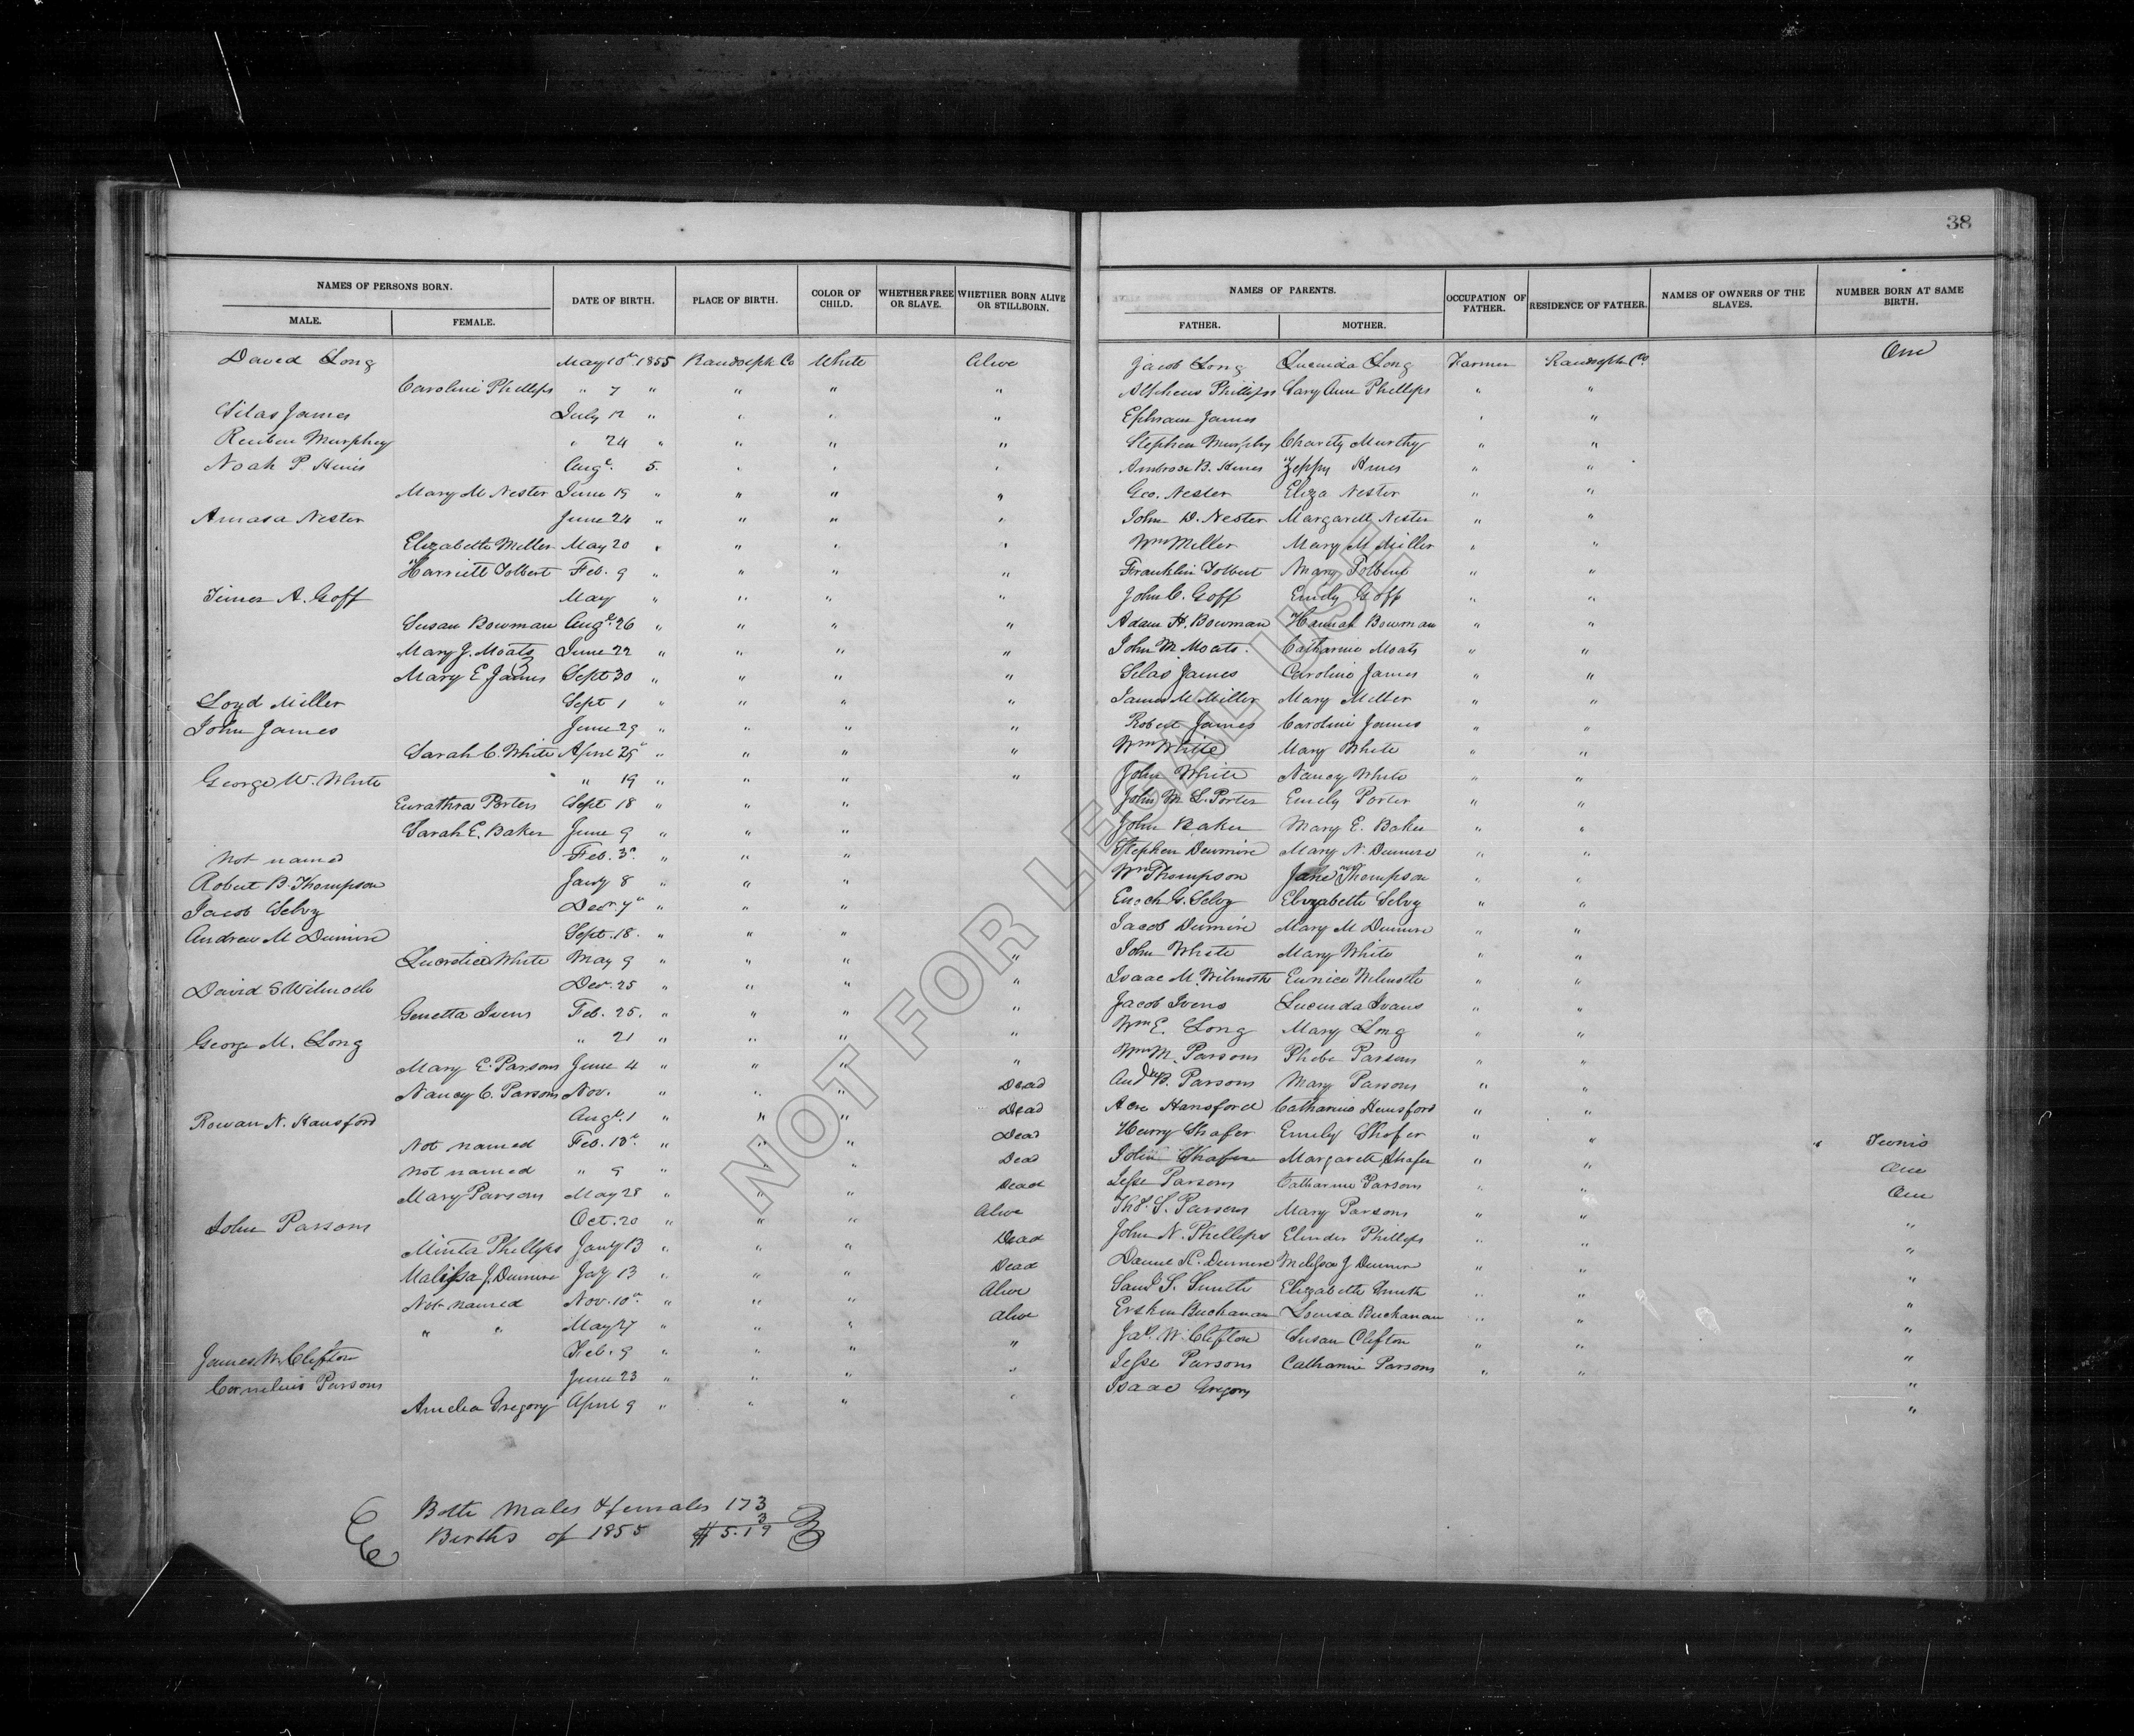 38
NAMES OF PERSONS BORN. DATE OF BIRTH. PLACE OF BIRTH. COLOR OF CHILD. WHETHER FREE OR SLAVE. WHETHER BORN ALIVE OR STILLBORN. NAMES OF PARENTS. OCCUPATION OF FATHER. RESIDENCE OF FATHER. NAMES OF OWNERS OF THE SLAVES. NUMBER BORN AT SAME BIRTH.
MALE. FEMALE. FATHER. MOTHER.
David Long May 10 1855 Randolph Co White Alive Jacob Long Lucinda Long Farmer Randolph Co. One
Caroline Phillips " 7 " " " " Alpheus Phillips Sary Ann Phillips " "
Silas James July 12 " " " " Ephraim James " "
Reuben Murphey " 24 " " " " Stephen Murphy Charity Murphy " "
Noah P. Hines Augt. 5. " " " Ambrose B. Hines Zeppy Hines " "
Mary M Nester June 15 " " " " Geo. Nester Eliza Nester " "
Amasa Nester June 24 " " " " John D. Nester Margarett Nester " "
Elizabeth Miller May 20 " " " " Wm Miller Mary M Miller " "
Harriett Tolbert Feb. 9 " " " " Franklin Tolbert Mary Tolbert " "
A. Goff May " " " " John C. Goff Emily Goff " "
Susan Bowman Augt. 26 " " " " Adam H. Bowman Hannah Bowman " "
Mary J. Moats June 22 " " " " John M. Moats. Catharine Moats " "
Mary E James Sept 30 " " " " Silas James Caroline James " "
Loyd Miller Sept 1 " " " " James M Miller Mary Miller " "
John James June 29 " " " " Robert James Caroline James " "
Sarah C. White April 25 " " " " Wm White Mary White " "
George W. White " 19 " " " " John White Nancy White " "
Porter Sept 18 " " " John M. L. Porter Emily Porter " "
Sarah E. Baker June 9 " " " John Baker Mary E. Baker " "
Not named Feb. 3 " " " Stephen Dumire Mary N. Dumire " "
Robert B. Thompson Jany 8 " " " Wm Thompson Jane Thompson " "
Jacob Selvy Decr 7 " " " Enoch G. Selvy Elizabeth Selvy " "
Andrew M Dumire Sept. 18. " " " Jacob Dumire Mary M Dumire " "
Lucretia White May 9 " " " " John White Mary White " "
David S Wilmoth Dec. 25 " " " " Isaac M. Wilmoth Eunice Wilmoth " "
Genetta Ivens Feb. 25. " " " " Jacob Ivens Lucinda Ivans " "
George M. Long " 21 " " " " Wm E. Long Mary Long " "
Mary E. Parsons June 4 " " " " Wm M. Parsons Phebe Parsons " "
Nancy C. Parsons Nov. " " " Dead Andw B. Parsons Mary Parsons " "
Rowan N. Hansford Augt. 1 " " Dead Acre Hansford Catharine Hansford " "
Not named Feb. 10 " " " Dead Henry Shafer Emily Shafer " " Twins
Not named " 9 " " " Dead John Shafer Margarett Shafer " " One
Mary Parsons May 28 " " " Dead Jesse Parsons Catharine Parsons " " One
John Parsons Oct. 20 " " " Alive Thos. S. Parsons Mary Parsons " " "
Minta Phillips Jany 13 " " " Dead John N. Phillips Elinder Phillips " " "
Malissa J. Dumire Jay 13 " " " Dead Daniel K. Dumire Melissa J Dumire " " "
Not named Nov. 10 " " " Alive Saml S. Smith Elizabeth Smith " " "
" " May 27 " " " Alive Erskin Buchanan Louisa Buchanan " " "
James W. Clifton Feb. 9 " " " " Jas. W. Clifton Susan Clifton " " "
Cornelius Parsons June 23 " " " " Jesse Parsons Catharine Parsons " " "
Amelia Gregory April 9 " " " " Isaac Gregory "
Both Males & females 173
3
Births of 1855 # 5.19
NOT FOR LEGAL USE